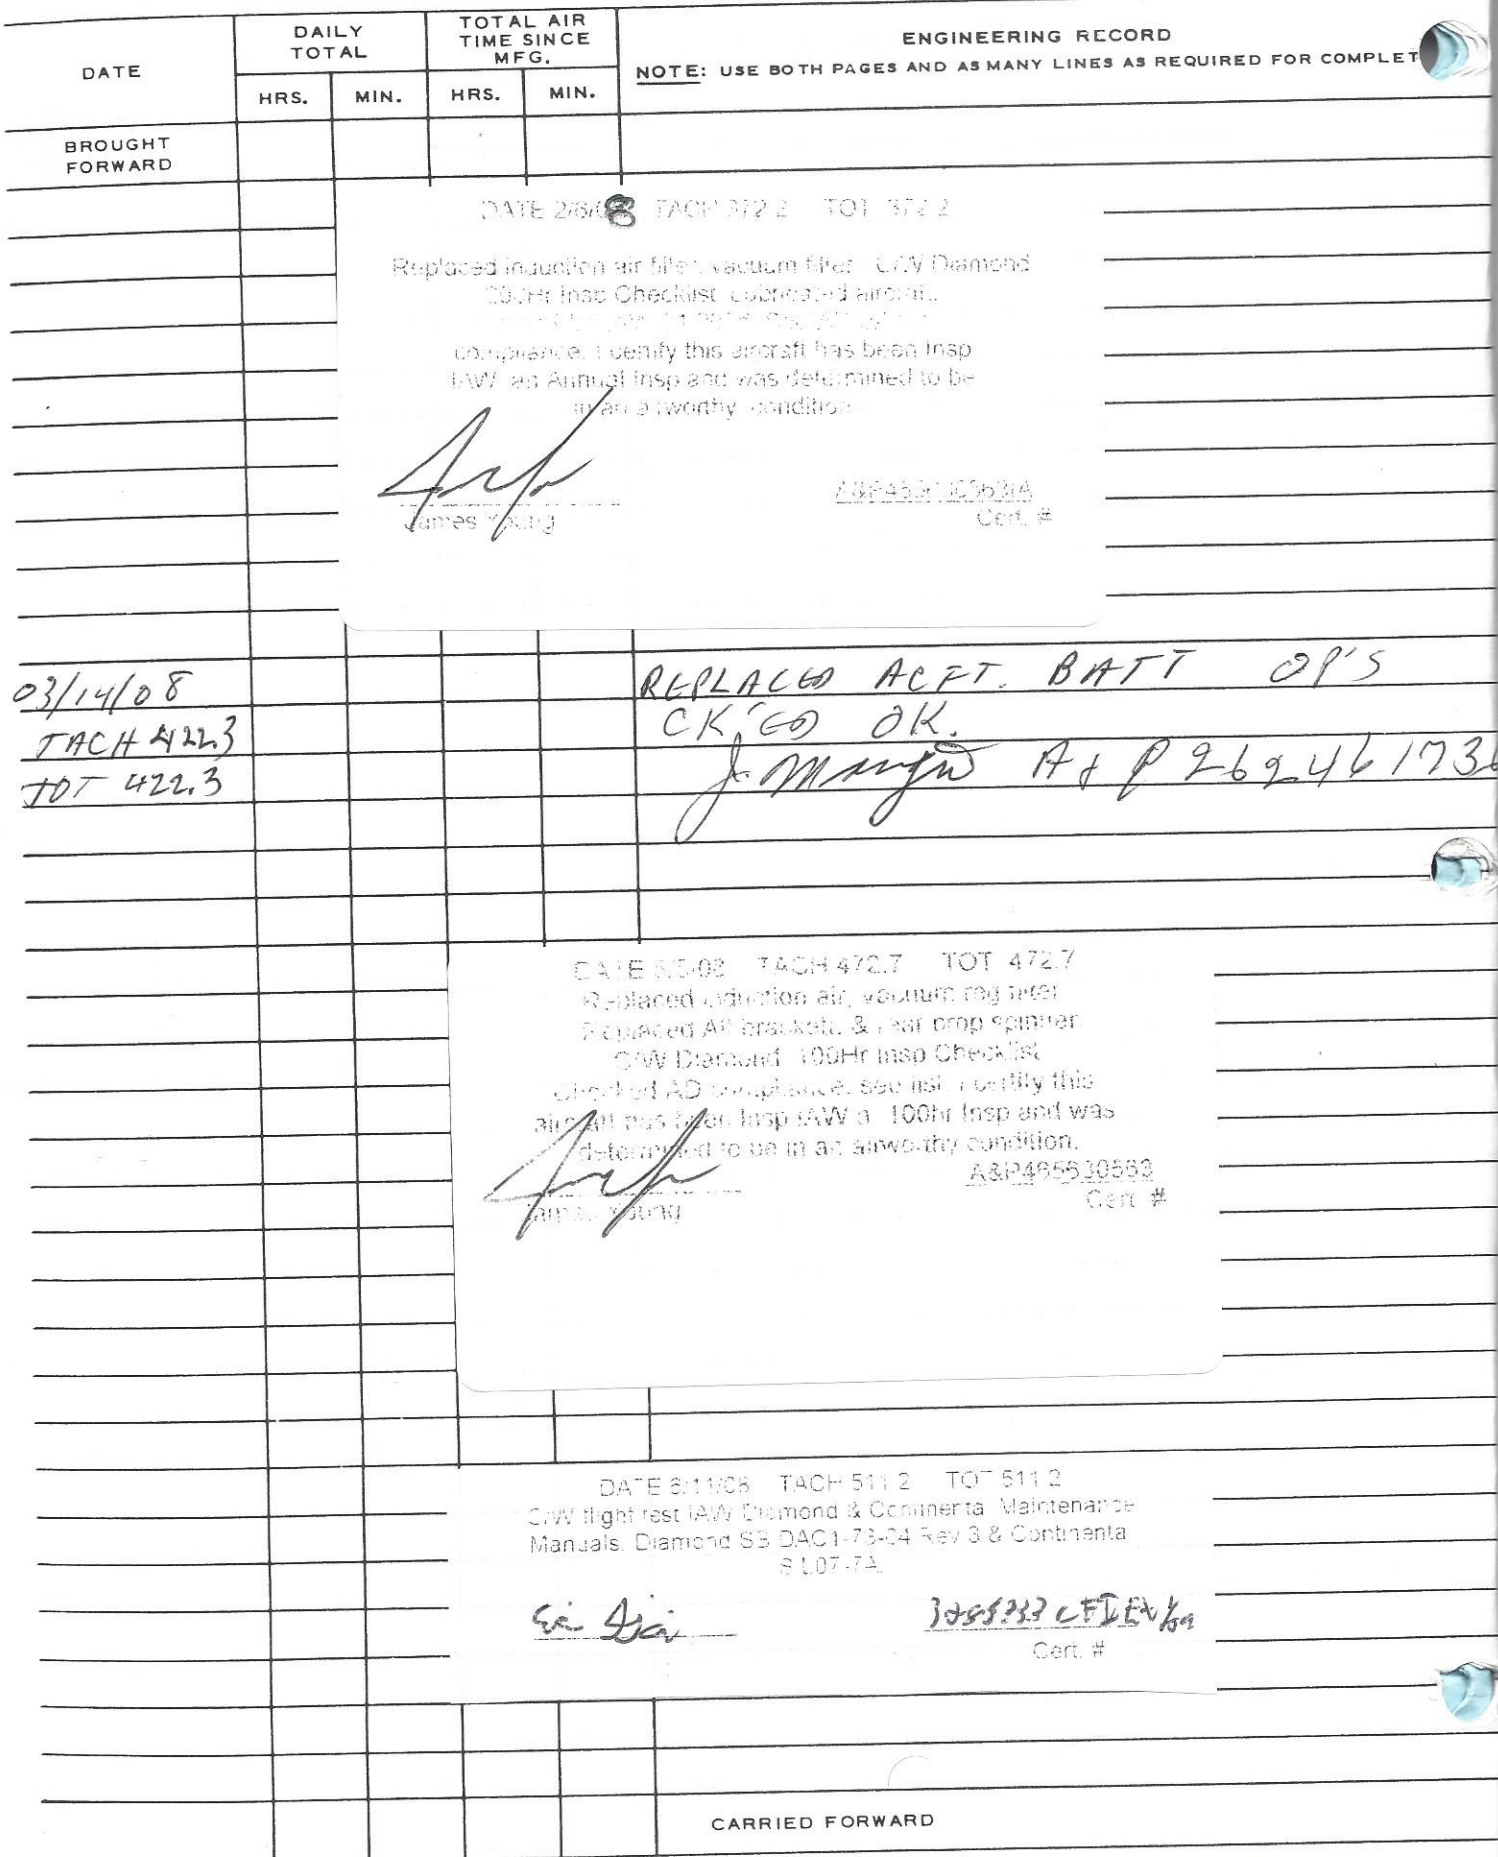 DATE
DAILY TOTAL
TOTAL AIR TIME SINCE MFG.
ENGINEERING RECORD
NOTE: USE BOTH PAGES AND AS MANY LINES AS REQUIRED FOR COMPLET
HRS. MIN. HRS. MIN.
BROUGHT FORWARD
DATE 2/6/08 TACH 372.2 TOT 372.2
Replaced induction air filter, vacuum filter. C/W Diamond
Hr Insp Checklist. Lubricated aircraft.
compliance. I certify this aircraft has been Insp
IAW an Annual Insp and was determined to be
in an airworthy condition
James Young
Cert. #
03/14/08 REPLACED ACFT. BATT OP'S
TACH 422.3 CK'ED OK.
TOT 422.3 A & P 26246173
DATE TACH 472.7 TOT 472.7
Replaced induction air, vacuum reg filter
Replaced Alt brackets & rear prop spinner.
C/W Diamond 100Hr Insp Checklist
Checked AD compliance, see list. I certify this
aircraft has been Insp IAW a 100hr Insp and was
determined to be in an airworthy condition.
A&P465630563
James Young Cert. #
DATE 6/11/08 TACH 511.2 TOT 511.2
C/W flight test IAW Diamond & Continental Maintenance
Manuals. Diamond SB DAC1-73-04 Rev 3 & Continental
Cert. #
CARRIED FORWARD